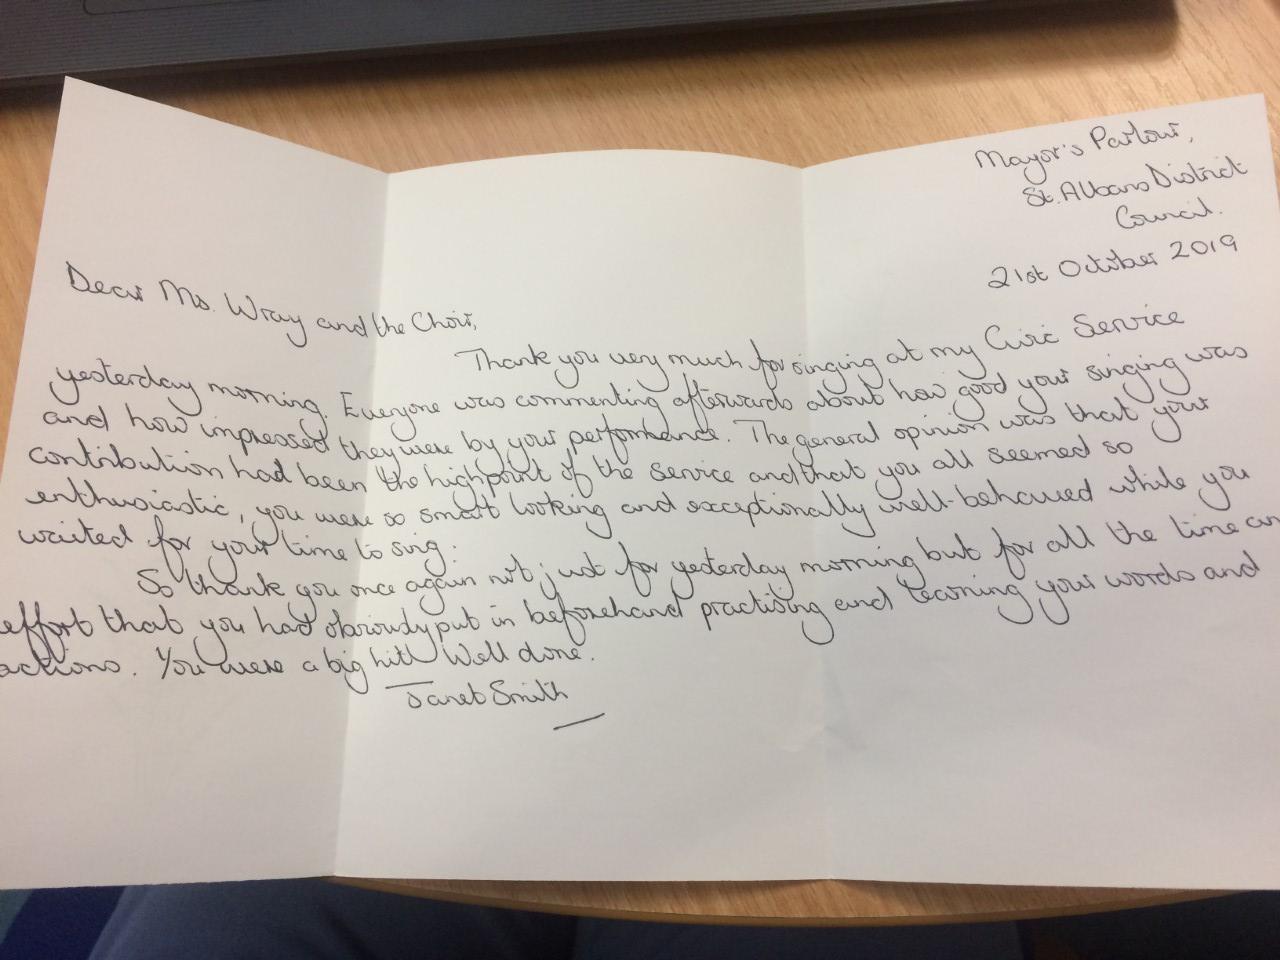 Mayor's Parlour,
St. Albans District
Council.
21st October 2019
Dear Ms. Wray and the Choir,
Thank you very much for singing at my Civic Service
yesterday morning. Everyone was commenting afterwards about how good your singing was
and how impressed they were by your performance. The general opinion was that your
contribution had been the highpoint of the service and that you all seemed so
enthusiastic, you were so smart looking and exceptionally well-behaved while you
waited for your time to sing.
So thank you once again not just for yesterday morning but for all the time an
effort that you had obviously put in beforehand practising and learning your words and
actions. You were a big hit! Well done.
Janet Smith